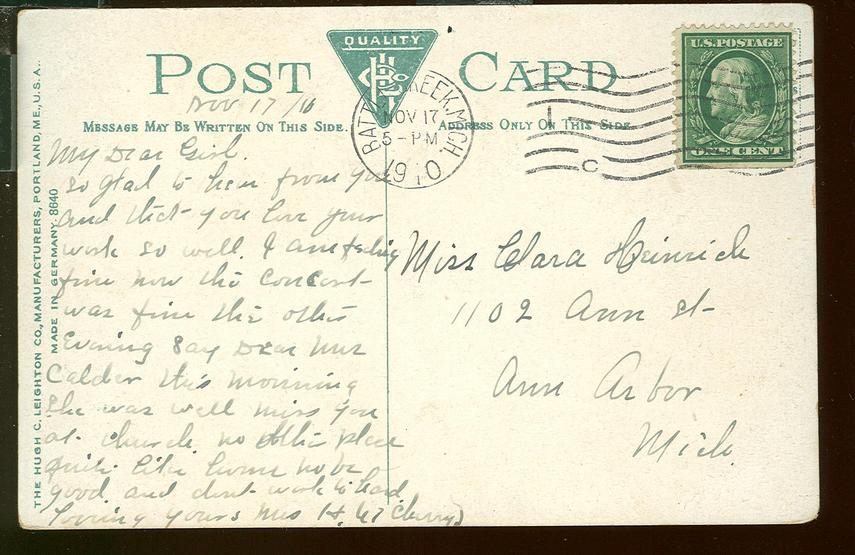 QUALITY
POST CARD
Nov 17/10
MESSAGE MAY BE WRITTEN ON THIS SIDE.
ADDRESS ONLY ON THIS SIDE.
BATTLE CREEK, MICH
NOV 17
5-PM
1910
C
U.S. POSTAGE
ONE CENT
THE HUGH C. LEIGHTON CO., MANUFACTURERS, PORTLAND, ME., U.S.A..
MADE IN GERMANY. 8640
My Dear Girl.
so glad to hear from you
and that you love your
work so well. I am feeling
fine now the Concert
was fine the other
Evening Say Dear Mrs
Calder this morning
she was well miss you
at church no other place
quite like home so be
good and dont work to hard
Loving yours Mrs H.
Miss Clara Heinrich
1102 Ann St
Ann Arbor
Mich.